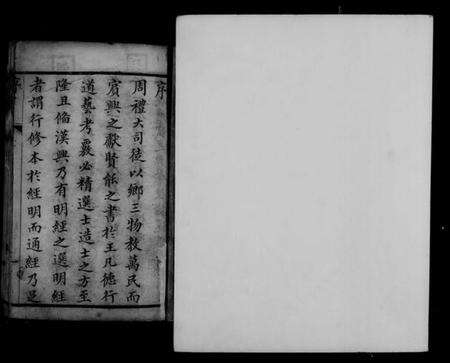 序
周禮大司徒以鄉三物教萬民而
賓興之獻賢能之書於王凡德行
道藝考覈必精選士造士之方至
隆且備漢興乃有明經之選明經
者謂行修本於經明而通經乃足